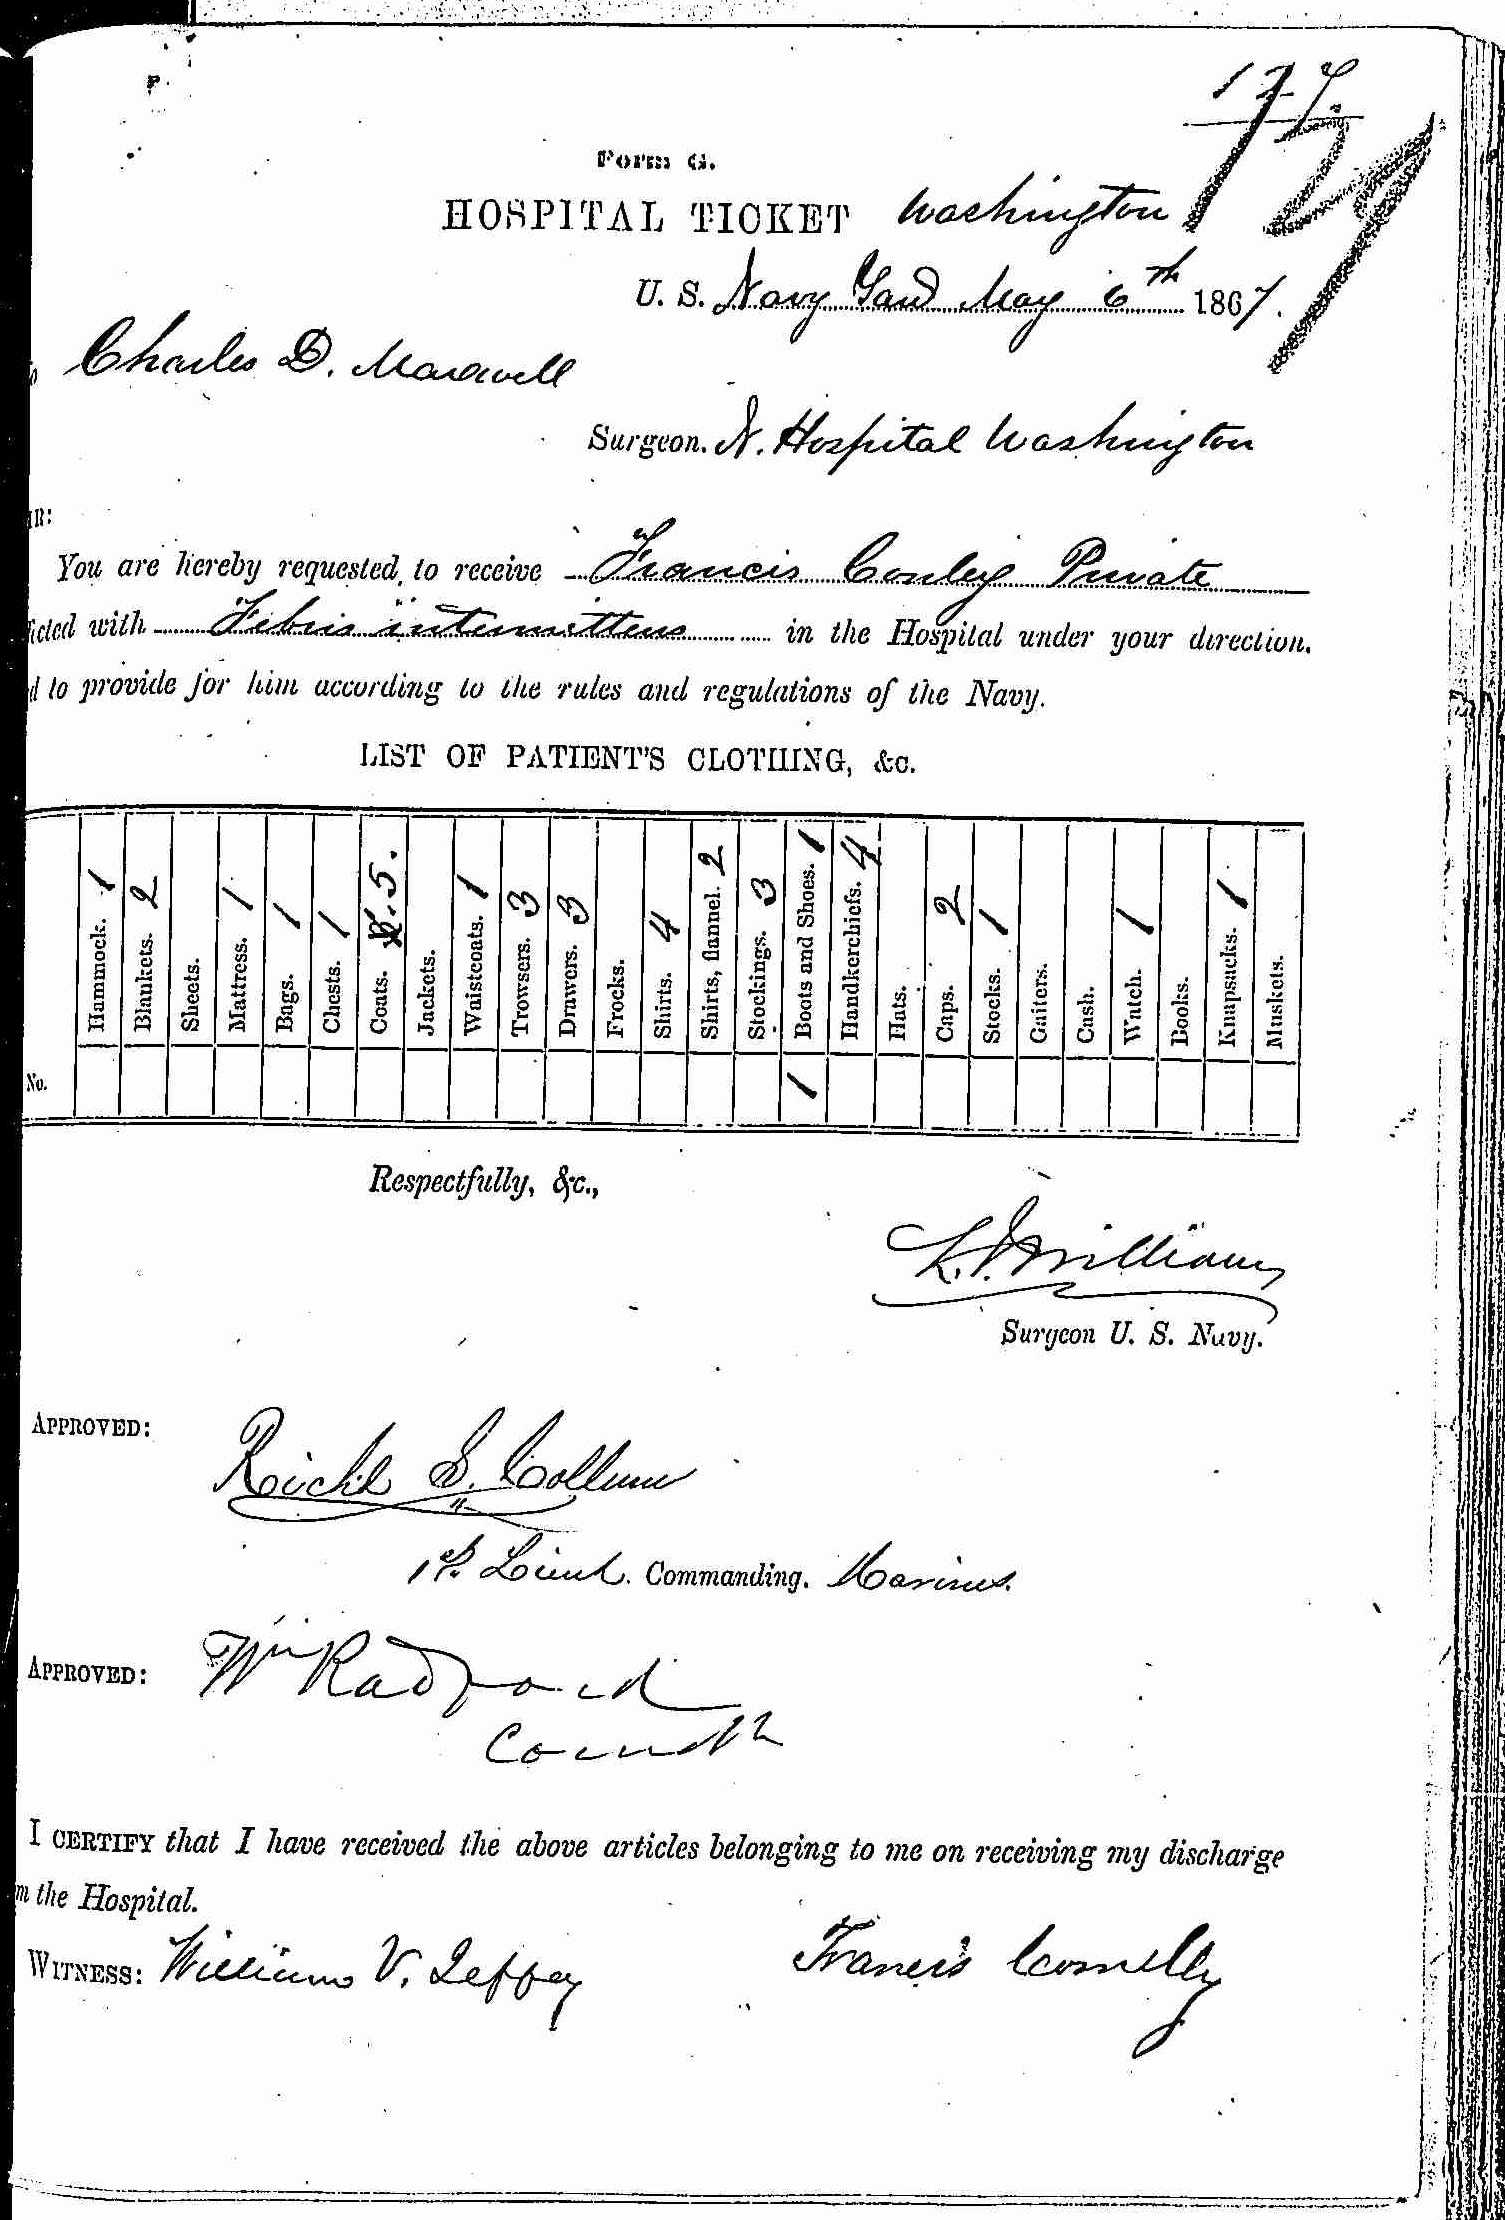 127.
129
Form G.
HOSPITAL TICKET Washington
U. S. Navy Yard May 6th 1867.
Charles D. Maxwell
Surgeon. N. Hospital Washington
You are hereby requested, to receive Francis Conley Private
with Febris intermittens in the Hospital under your direction.
to provide for him according to the rules and regulations of the Navy.
LIST OF PATIENT'S CLOTHING, &c.
Hammock. 1
Blankets. 2
Sheets.
Mattress. 1
Bags. 1
Chests. 1
Coats. 5.
Jackets.
Waistcoats. 1
Trowsers. 3
Drawers. 3
Frocks.
Shirts. 4
Shirts, flannel. 2
Stockings. 3
Boots and Shoes. 1
Handkerchiefs. 4
Hats.
Caps. 2
Stocks. 1
Gaiters.
Cash.
Watch. 1
Books.
Knapsacks. 1
Muskets.
No. 1
Respectfully, &c.,
Surgeon U. S. Navy.
APPROVED: Richd S. Collum
1st. Lieut. Commanding. Marines.
APPROVED: Wm Radford
Comdt
I CERTIFY that I have received the above articles belonging to me on receiving my discharge
the Hospital.
WITNESS: William V. Francis Connelly